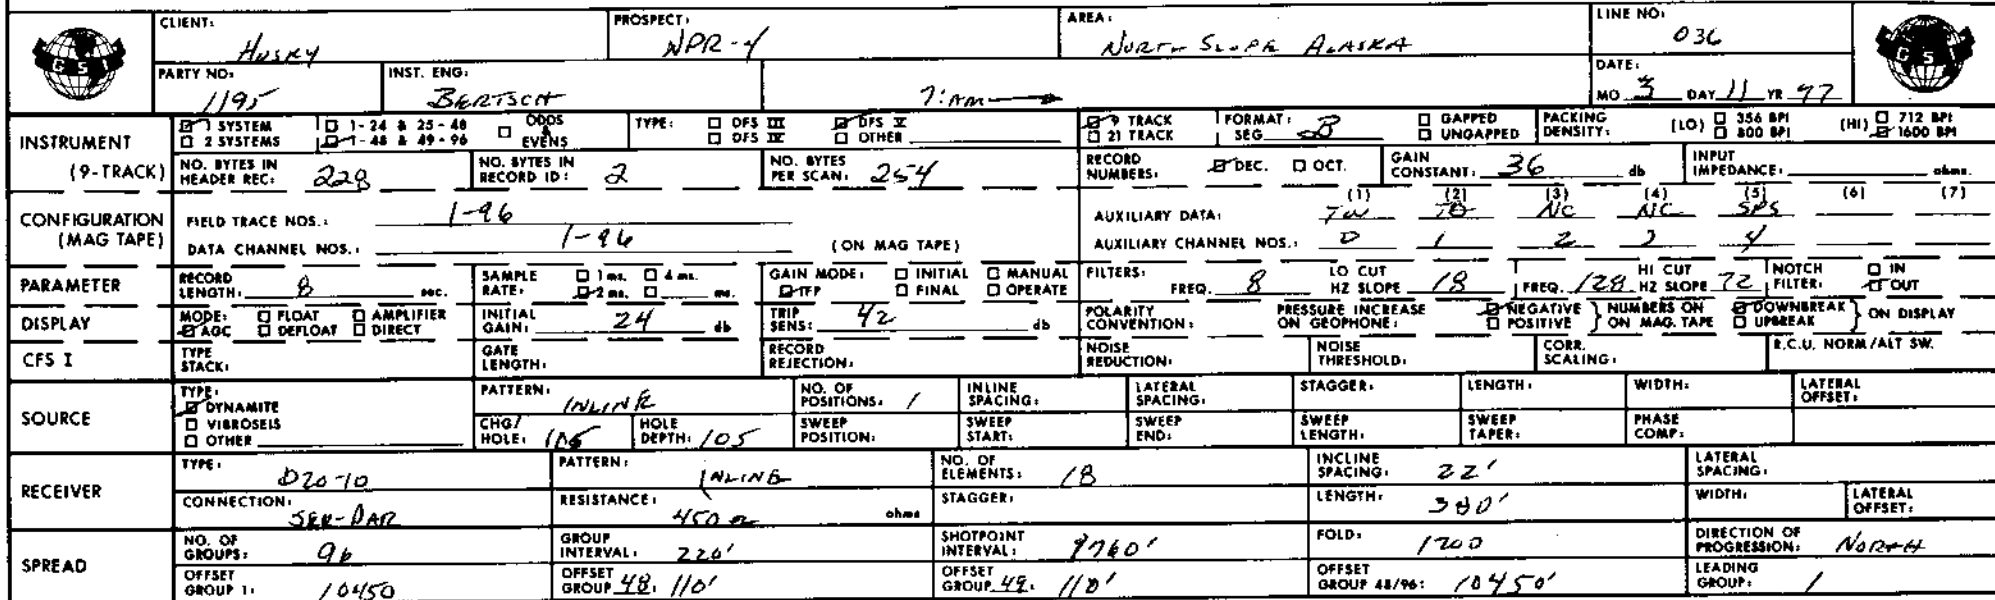 CLIENT: Husky PROSPECT: NPR-4 AREA: NORTH SLOPE ALASKA LINE NO: 036
GSI
PARTY NO: 1195 INST. ENG: BERTSCH 7:AM DATE: MO 3 DAY 11 YR 77
INSTRUMENT (9-TRACK)
1 SYSTEM 1-24 & 25-48 ODDS & EVENS TYPE: DFS III DFS V 9 TRACK FORMAT: SEG B GAPPED PACKING DENSITY: (LO) 356 BPI (HI) 712 BPI
2 SYSTEMS 1-48 & 49-96 DFS IV OTHER 21 TRACK UNGAPPED 800 BPI 1600 BPI
NO. BYTES IN HEADER REC: 228 NO. BYTES IN RECORD ID: 2 NO. BYTES PER SCAN: 254 RECORD NUMBERS: DEC. OCT. GAIN CONSTANT: 36 db INPUT IMPEDANCE: ohms.
CONFIGURATION (MAG TAPE)
FIELD TRACE NOS.: 1-96 AUXILIARY DATA: (1) TW (2) TB (3) NC (4) NC (5) SPS (6) (7)
DATA CHANNEL NOS.: 1-96 (ON MAG TAPE) AUXILIARY CHANNEL NOS.: 0 1 2 3 4
PARAMETER RECORD LENGTH: 8 sec. SAMPLE RATE: 1 ms. 4 ms. 2 ms. ms. GAIN MODE: INITIAL MANUAL IFP FINAL OPERATE FILTERS: FREQ. 8 LO CUT HZ SLOPE 18 FREQ. 128 HI CUT HZ SLOPE 72 NOTCH FILTER: IN OUT
DISPLAY MODE: FLOAT AMPLIFIER AGC DEFLOAT DIRECT INITIAL GAIN: 24 db TRIP SENS: 42 db POLARITY CONVENTION: PRESSURE INCREASE ON GEOPHONE: NEGATIVE POSITIVE } NUMBERS ON ON MAG. TAPE DOWNBREAK UPBREAK } ON DISPLAY
CFS I TYPE STACK: GATE LENGTH: RECORD REJECTION: NOISE REDUCTION: NOISE THRESHOLD: CORR. SCALING: R.C.U. NORM/ALT SW.
SOURCE TYPE: DYNAMITE VIBROSEIS OTHER
PATTERN: INLINE NO. OF POSITIONS: 1 INLINE SPACING: LATERAL SPACING: STAGGER: LENGTH: WIDTH: LATERAL OFFSET:
CHG/HOLE: HOLE DEPTH: 105 SWEEP POSITION: SWEEP START: SWEEP END: SWEEP LENGTH: SWEEP TAPER: PHASE COMP:
RECEIVER TYPE: D20-10 PATTERN: INLINE NO. OF ELEMENTS: 18 INCLINE SPACING: 22' LATERAL SPACING:
CONNECTION: SER-PAR RESISTANCE: 450 Ω ohms STAGGER: LENGTH: 380' WIDTH: LATERAL OFFSET:
SPREAD NO. OF GROUPS: 96 GROUP INTERVAL: 220' SHOTPOINT INTERVAL: FOLD: 1200 DIRECTION OF PROGRESSION: NORTH
OFFSET GROUP 1: 10450 OFFSET GROUP 48: 110' OFFSET GROUP 49: 110' OFFSET GROUP 48/96: 10450' LEADING GROUP: 1
GSI